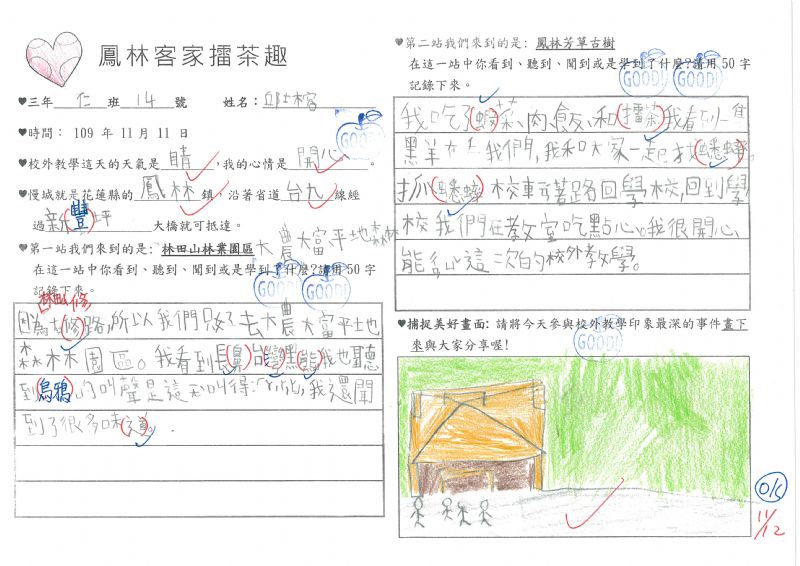 鳳林客家擂茶趣
♥三年 仁 班 14 號 姓名:
♥時間: 109 年 11 月 11 日
♥校外教學這天的天氣是 晴 ,我的心情是 開心 。
♥慢城就是花蓮縣的 鳳林 鎮,沿著省道 台九 線經
過 新(豐)坪 大橋就可抵達。
♥第一站我們來到的是: 林田山林業園區 大農大富平地森林
在這一站中你看到、聽到、聞到或是學到了什麼?請用 50 字
記錄下來。
林田山修
因為在(修)路,所以我們只好去大農大富平地
森林園區。我看到長(鼻)台(灣)黑(熊)我也聽
到(烏鴉)的叫聲是這
我還聞
到了很多味(道)。
♥第二站我們來到的是: 鳳林芳草古樹
在這一站中你看到、聽到、聞到或是學到了什麼?請用 50 字
記錄下來。
我吃了(蝦)菜、肉、飯、和(擂茶)我看到一隻
黑羊
我們,我和大家一起找(蟋蟀)
抓(蟋蟀)校車
著路回學校,回到學
校我們在教室吃點心。我很開心
能
這一次的校外教學。
♥捕捉美好畫面: 請將今天參與校外教學印象最深的事件畫下
來與大家分享喔!
GOOD!
GOOD!
GOOD!
GOOD!
GOOD!
GOOD!
OK
11/12